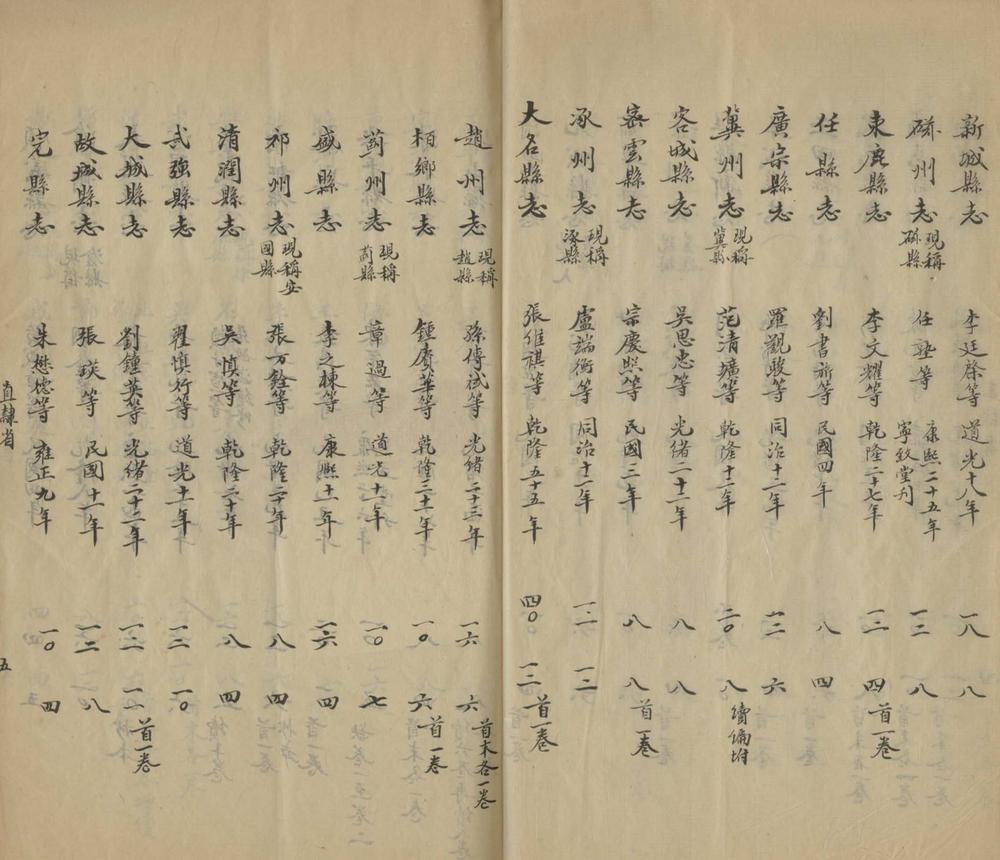 新城縣志 李廷棨等 道光十八年 一八 八
磁州志 現稱磁縣 任塾等 康熙二十五年寧致堂刊 一二 八
束鹿縣志 李文耀等 乾隆二十七年 一二 四 首一卷
任縣志 劉書旂等 民國四年 八 四
廣宗縣志 羅觀駿等 同治十二年 一二 六
冀州志 現稱冀縣 范清壙等 乾隆十二年 二〇 八 續編坿
容城縣志 吳思忠等 光緒二十二年 八 八
密雲縣志 宗慶煦等 民國三年 八 八 首一卷
涿州志 現稱涿縣 盧端衡等 同治十一年 一二
大名縣志 張維祺等 乾隆五十五年 四〇 一二 首一卷
趙州志 現稱趙縣 孫傳栻等 光緒二十三年 一六 六 首末各一卷
栢鄉縣志 鍾賡華等 乾隆三十一年 一〇 六 首一卷
薊州志 現稱薊縣 章過等 道光十一年 一〇 七
盛縣志 李之棟等 康熙十一年 一六 四
祁州志 現稱安國縣 張万銓等 乾隆二十年 八 四
清澗縣志 吳慎等 乾隆二十年 八 四
武強縣志 翟慎行等 道光十一年 一二 一〇
大城縣志 劉鍾英等 光緒二十三年 一二 一一 首一卷
故城縣志 張鍈等 民國十一年 一二 八
完縣志 朱懋德等 雍正九年 一〇 四
直隸省
五